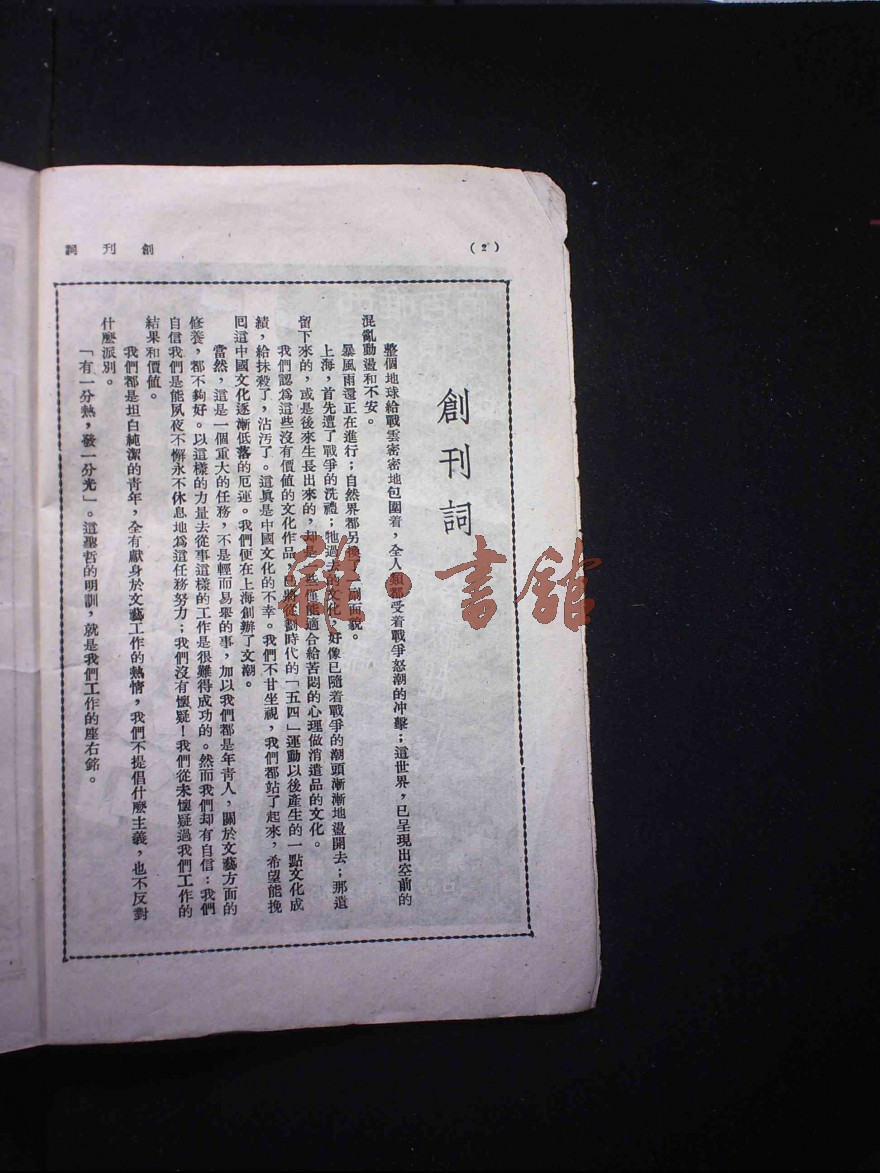 (2)
創刊詞
創刊詞
整個地球給戰雲密密地包圍着，全人類都受着戰爭怒潮的冲擊；這世界，已呈現出空前的
混亂動盪和不安。
暴風雨還正在進行；自然界都另換了一副面貌。
上海，首先遭了戰爭的洗禮；牠過去的文化，好像已隨着戰爭的潮頭漸漸地盪開去；那遺
留下來的，或是後來生長出來的，却是一些僅能適合給苦悶的心理做消遣品的文化。
我們認爲這些沒有價值的文化作品，已將從劃時代的「五四」運動以後產生的一點文化成
績，給抹殺了，沾污了。這眞是中國文化的不幸。我們不甘坐視，我們都站了起來，希望能挽
回這中國文化逐漸低落的厄運。我們便在上海創辦了文潮。
當然，這是一個重大的任務，不是輕而易舉的事，加以我們都是年青人，關於文藝方面的
修養，都不夠好。以這樣的力量去從事這樣的工作是很難得成功的。然而我們却有自信：我們
自信我們是能夙夜不懈永不休息地爲這任務努力；我們沒有懷疑！我們從未懷疑過我們工作的
結果和價值。
我們都是坦白純潔的青年，全有獻身於文藝工作的熱情，我們不提倡什麼主義，也不反對
什麼派別。
「有一分熱，發一分光」。這聖哲的明訓，就是我們工作的座右銘。
雜·書館